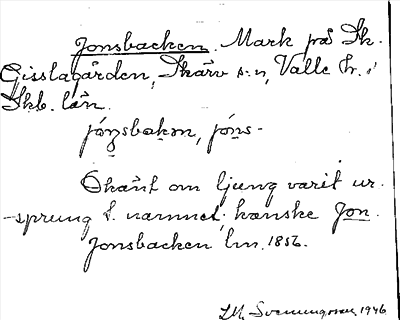 Jonsbacken. Mark på Sk.
Gisslagården, Skärv s:n, Valle hr. i
Skb. län.
jónsbakən, jóns-
Okänt om ljung varit ur-
-sprung t. namnet. kanske Jon.
Jonsbacken Lm. 1856.
Svenungsson 1946